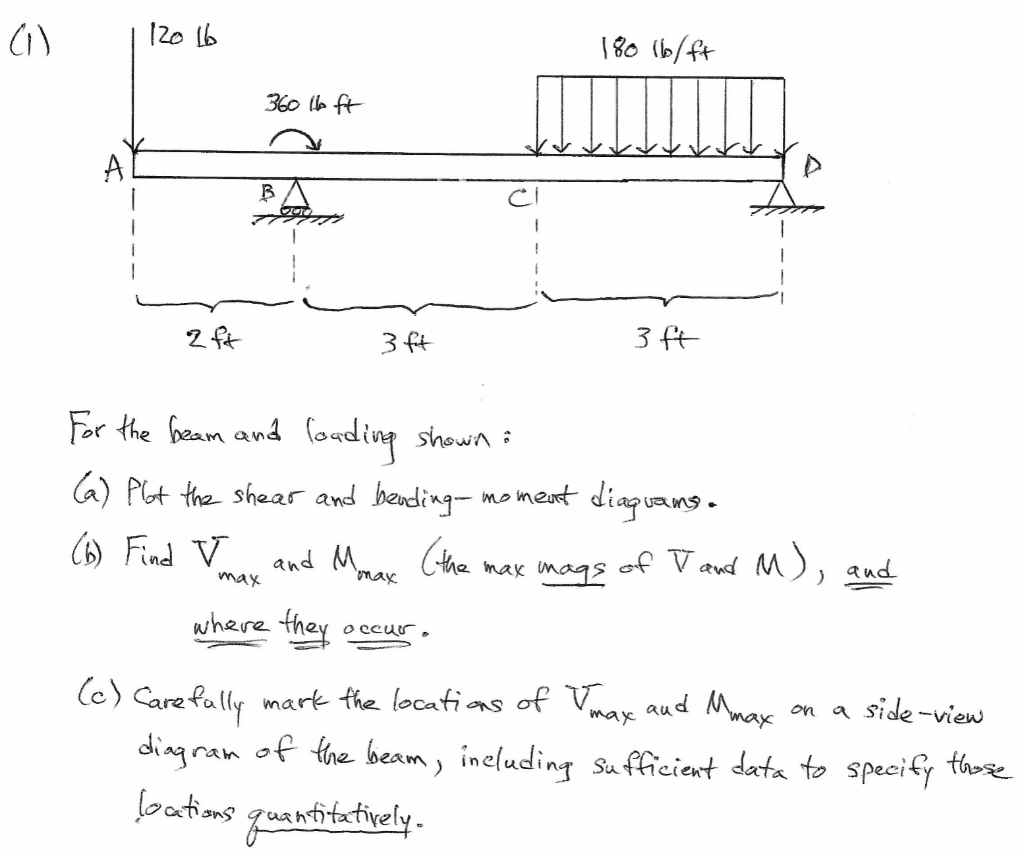 (1)
120 lb
180 lb/ft
360 lb ft
A
B
C
D
2 ft
3 ft
3 ft
For the beam and loading shown:
(a) Plot the shear and bending-moment diagrams.
(b) Find Vmax and Mmax (the max mags of V and M), and
where they occur.
(c) Carefully mark the locations of Vmax and Mmax on a side-view
diagram of the beam, including sufficient data to specify those
locations quantitatively.